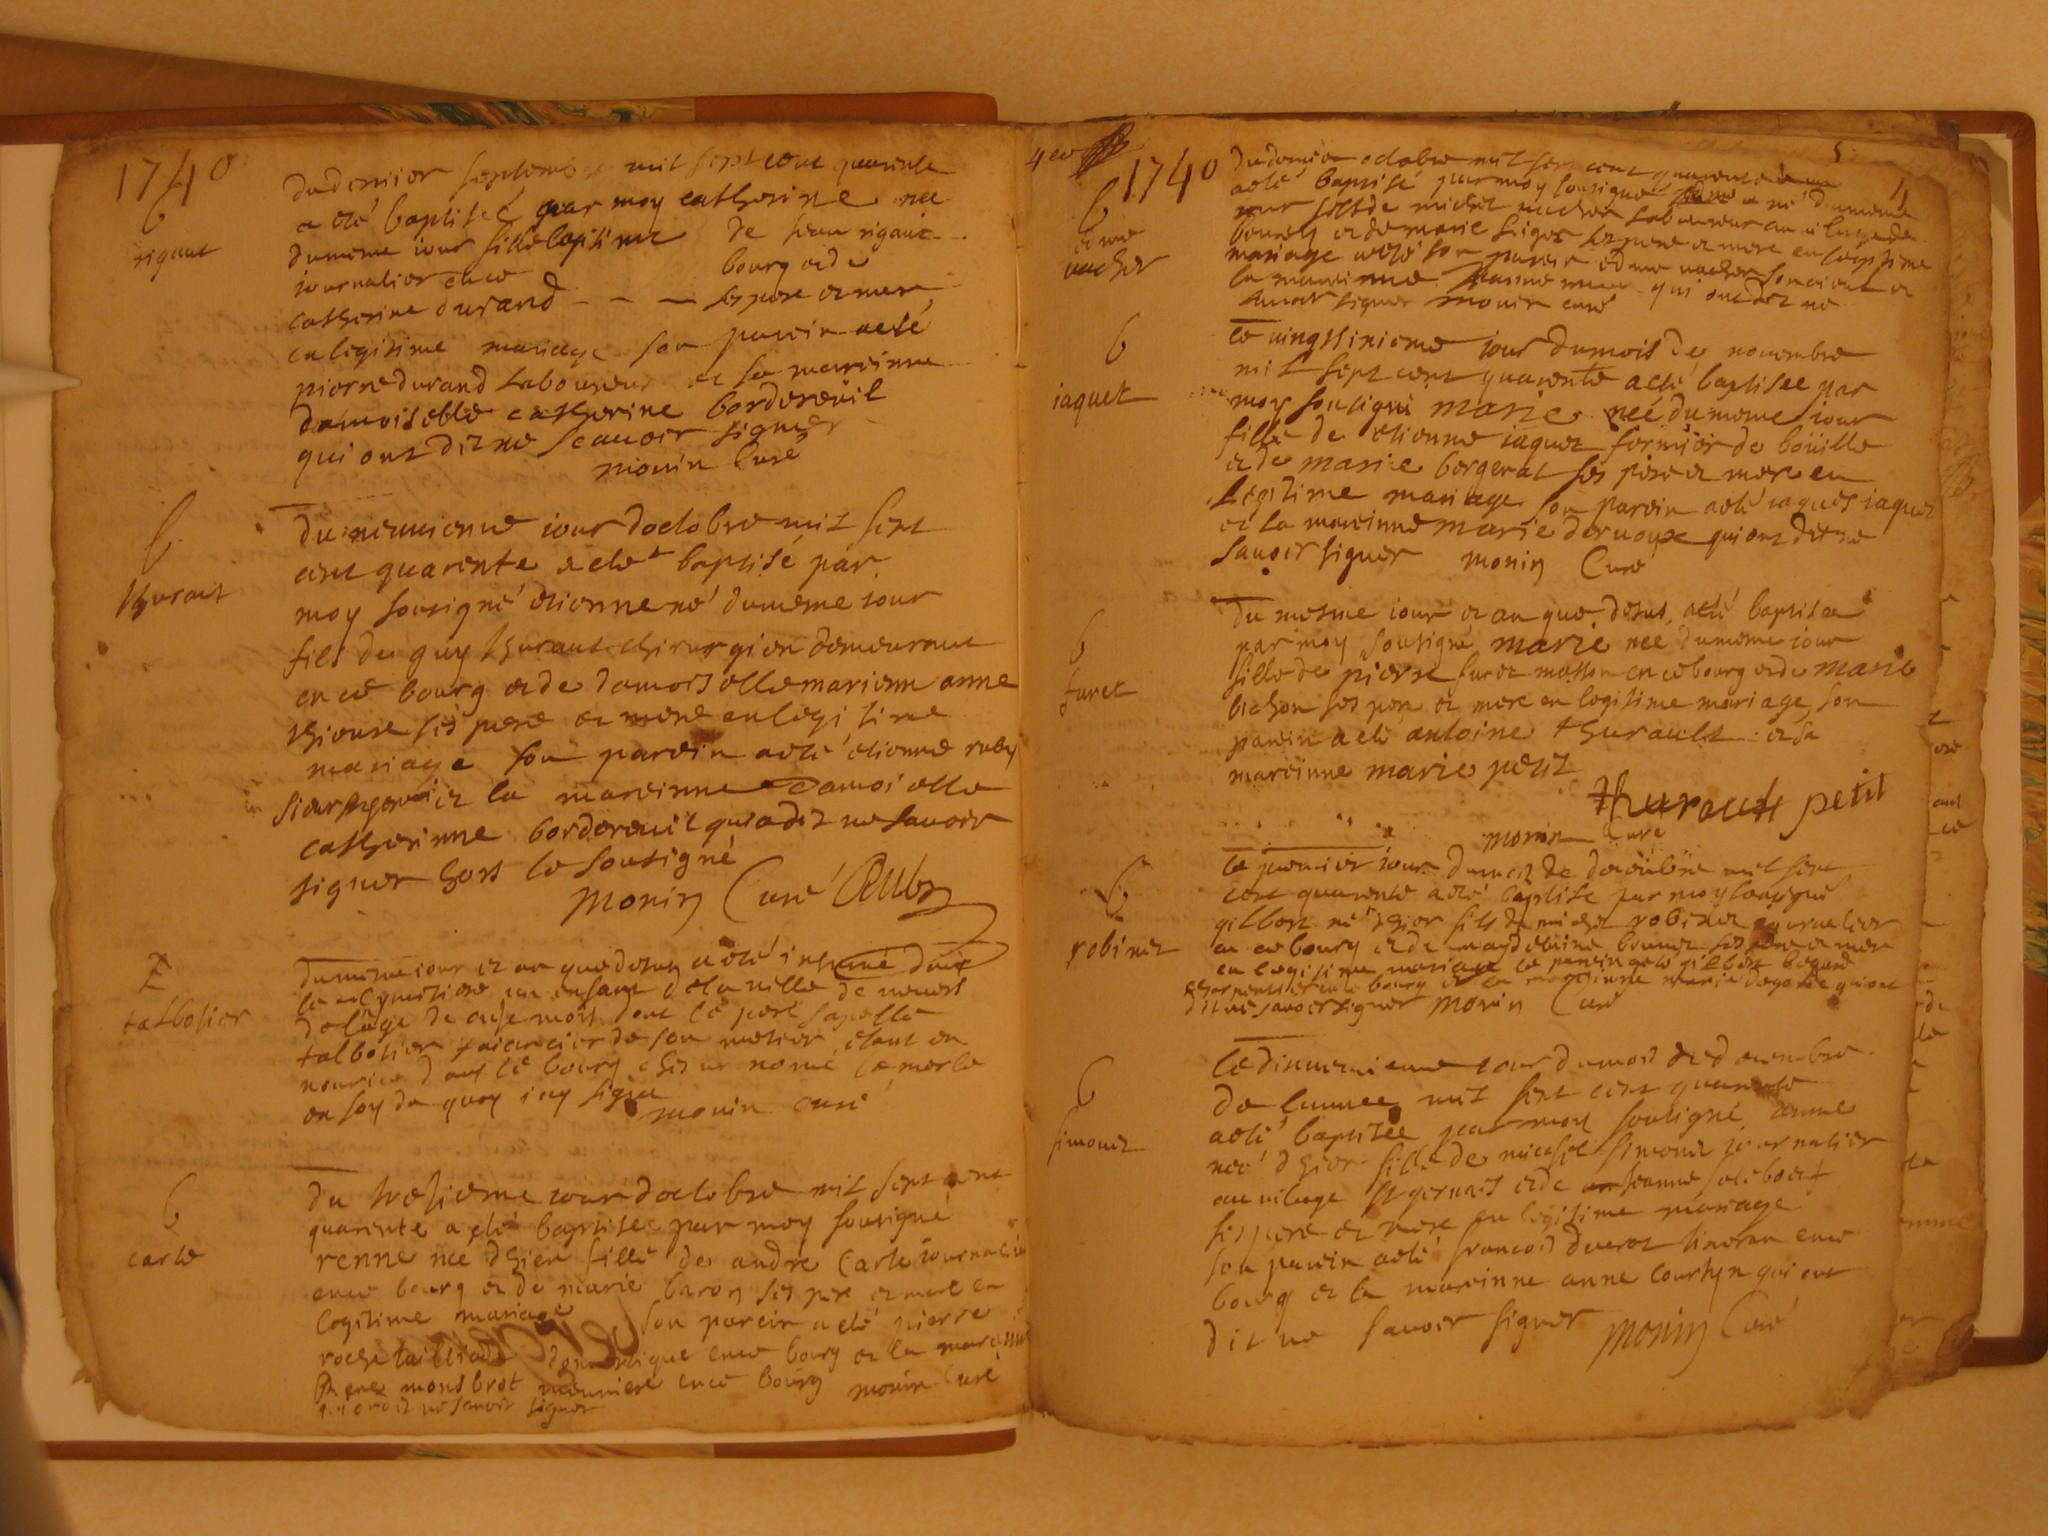 1740
b
rigaut
du dernier septembre mil sept cent quarente
a eté baptiseé par moy catherine neé
du meme iour fille legitime de jean rigaut
iournalier en ce bourg et de
catherine durand - - - ses pere et mere
en legitime mariage son parein a eté
pierre durand laboureur et la mareinne
damoiselle catherine bordereüil
qui ont dit ne scauoir signer
monin Curé
b
thuraut
du neuuienne iour doctobre mil sept
cent quarente a eté baptisé par
moy sousigné etienne né du même iour
fils de guy thuraut chirurgien demeurant
en ce bourg et de damoiselle marienn anne
ses pere et mere en legitime
mariage son parein a eté etienne ruby
sieur et la mareinne damoiselle
catherinne bordereuil qui a dit ne sauoir
signer hors le sousigné
monin Curé Ruby
E
talbotier
du meme iour et an que desus a eté inhumé dans
le cimetiere un enfant de la ville de neuers
de lage de onse mois dont le pere sapelle
talbotier faiancier de son metier etant en
nourice dans le bourg chez un nomé lemerle
en foy de quoy iay signé
monin curé
b
carle
du tresieme iour doctobre mil sept cent
quarente a eté baptisee par moy sousigné
renne neé dhier fille de andre Carle iournalier
en ce bourg et de marie baron ses pere et mere en
legitime mariage son parein a eté pierre
roche tailliade domestique en ce bourg et la mareinne
monsbrot meuniere en ce bourg monin Curé
qui ont dit ne sauoir signer
4eo
5
1740
b
edme
uacher
du dernier octobre mil sept cent quarente
a eté baptisé par moy sousigné edme né du meme
iour fils de michel uacher laboureur au uilage de
et de marie ses pere et mere en legitime
mariage a eté son parein edme uacher son et
la mareinne qui ont dit ne
sauoir signer monin curé
b
iaquet
le uingtsixieme iour du mois de nouembre
mil sept cent quarente a eté baptisee par
moy sousigné marie neé du meme iour
fille de etienne iaquet fermier de boüille
et de marie bergerat ses pere et mere en
legitime mariage son parein a eté iaques iaquet
et la mareinne marie deruoux qui ont dit ne
sauoir signer monin Curé
b
furet
du mesme iour et an que desus a eté baptisee
par moy sousigné marie neé du meme iour
fille de pierre furet masson en ce bourg et de marie
bichon ses pere et mere en legitime mariage son
parein a eté antoine thurault et sa
mareinne marie petit
thurault petit
monin Curé
b
robinet
le premier iour du mois de decembre mil sept
cent quarente a eté baptisé par moy sousigné
gilbert né dhier fils de michel robinet iournalier
en ce bourg et de magdeleine bonnet ses pere et mere
en legitime mariage le parein a eté gilbert begard
charpentier en ce bourg et la mareinne marie begarde qui ont
dit ne sauoir signer monin Curé
b
simonet
le dixneuuieme iour du mois de decembre
de lannee mil sept cent quarente
a eté baptisee par moy sousigné anne
neé dhier fille de michel simonet iournalier
au uilage st geruais et de jeanne
ses pere et mere en legitime mariage
son parein a eté francois en ce
bourg et la mareinne anne courtyn qui ont
dit ne sauoir signer monin Curé